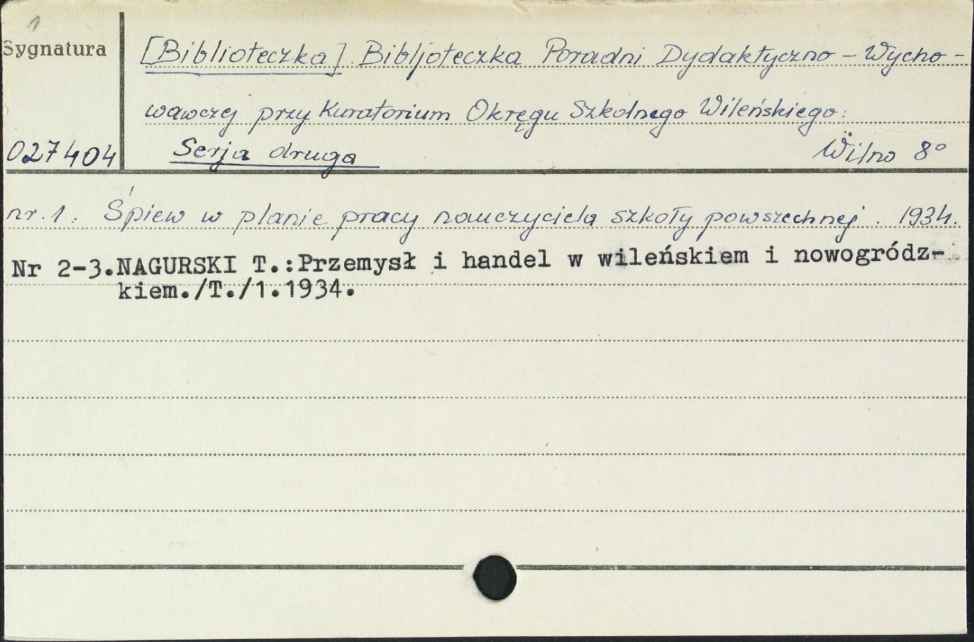 1
Sygnatura
[Biblioteczka] Bibljoteczka Poradni Dydaktyczno-Wycho-
wawczej przy Kuratorium Okręgu Szkolnego Wileńskiego.
027404
Serja druga
Wilno 8°
nr. 1. Śpiew w planie pracy nauczyciela szkoły powszechnej. 1934.
Nr 2-3.NAGURSKI T.:Przemysł i handel w wileńskiem i nowogródz-
kiem./T./1.1934.